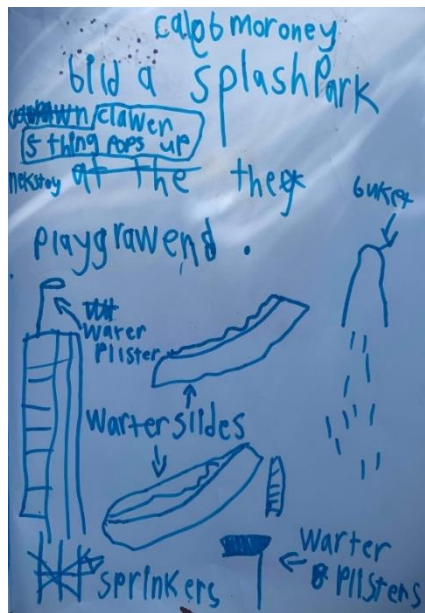 calob moroney
bild a splashPark
clawen
5 thing pops up
nekstoy at the the
playgrawend.
bukket
Warer
Plister
Warter slides
sprinkers
Warter
Plisters